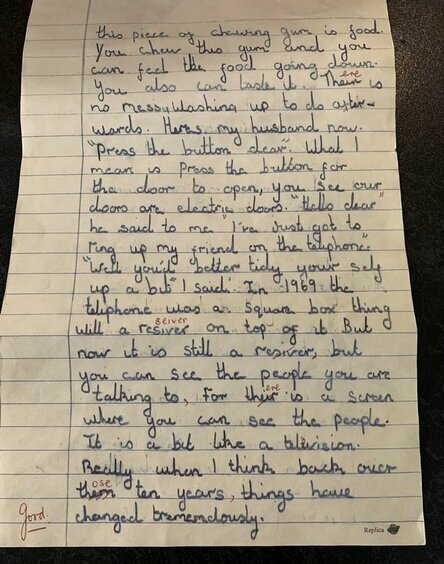 this piece of chewing gum is food.
You chew this gum and you
can feel the food going down.
ere
You also can taste it. Their is
no messy washing up to do after-
wards. Heres my husband now.
"Press the button dear". What I
mean is press the button for
the door to open, you see our
doors are electric doors. "Hello dear"
he said to me "I've just got to
ring up my friend on the telephone."
"Well you'd better tidy your self
up a bit" I said. In 1969 the
telephone was a square box thing
ceiver
will a resiver on top of it But
now it is still a resiver, but
you can see the people you are
ere
talking to, For their is a screen
where you can see the people.
It is a bit like a television.
Really when I think back over
ose
them ten years, things have
Good. changed trememdously.
Replica